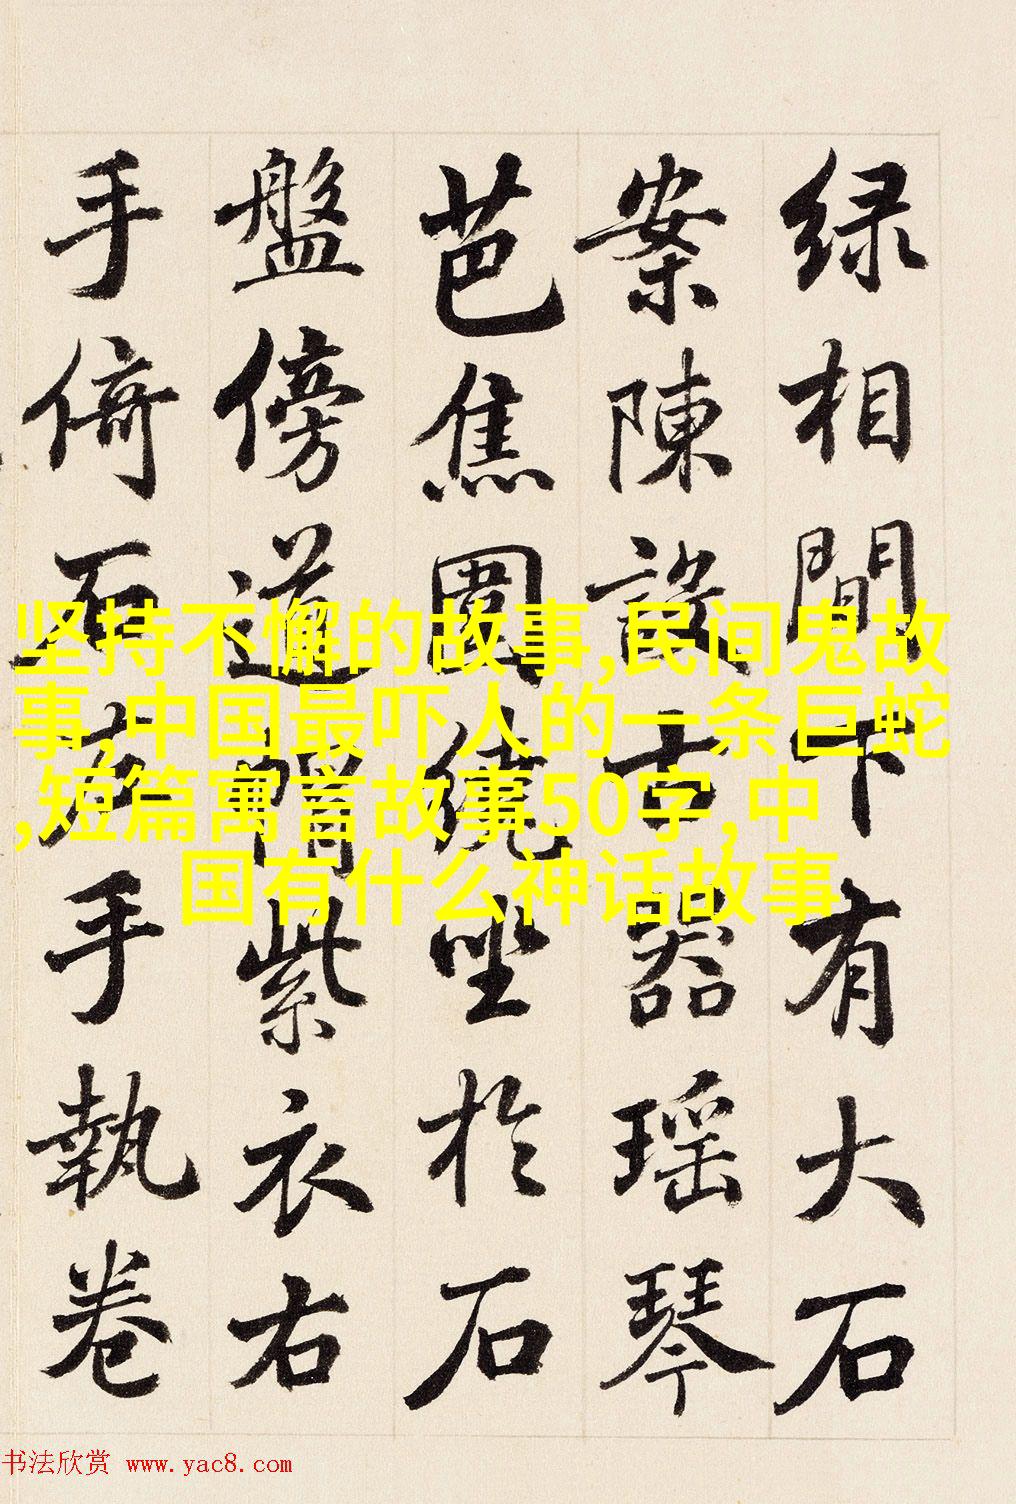 绿相間下有大石
案陳設古器瑶琴
芭焦圍繞坐於石
盤傍道帽紫衣右
手倚石左手執卷
坚持不懈的故事,民间鬼故
事,中国最吓人的一条巨蛇
,短篇寓言故事50字,中
国有什么神话故事
书法欣赏 www.yac8.com